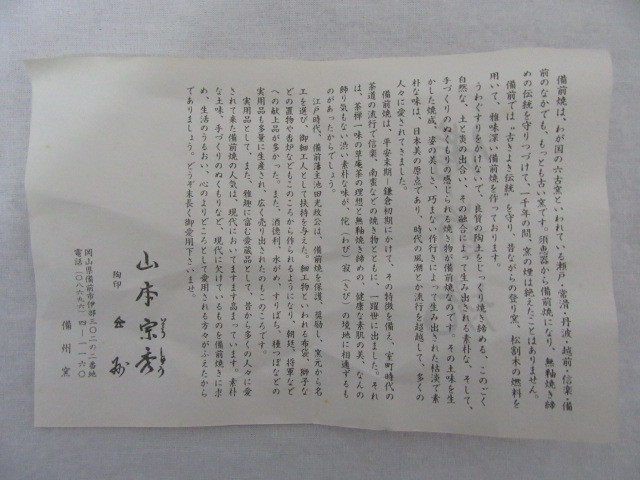 備前焼は、わが国の六古窯といわれている瀬戸・常滑・丹波・越前・信楽・備
前のなかでも、もっとも古い窯です。須恵器から備前焼になり、無釉焼き締
めの伝統を守りつづけて、一千年の間、窯の煙は絶えたことはありません。
備前では〝古きよき伝統〟を守り、昔ながらの登り窯、松割木の燃料を
用いて、雅味深い備前焼を作っております。
うわぐすりをかけないで、良質の陶土をじっくり焼き締める、このごく
自然な、土と炎の出合い、その融合によって生み出される素朴な、そして、
手づくりのぬくもりの感じられる焼き物が備前焼なのです。その土味を生
かした焼成、姿の美しさ、巧まない作行きによって生み出された枯淡で素
朴な味は、日本美の原点であり、時代の風潮とか流行を超越して、多くの
人々に愛されてきました。
備前焼は、平安末期―鎌倉初期にかけて、その特徴を備え、室町時代の
茶道の流行で信楽、南蛮などの焼き物とともに、一躍世に出ました。それ
は、茶禅一味の草庵茶の理想と無釉焼き締めの、健康な素肌の美、なんの
飾り気もない渋い素朴な味が、侘(わび)寂(さび)の境地に相通ずるも
のがあったからでしょう。
江戸時代、備前藩主池田光政公は、備前焼を保護、奨励し、窯元から名
工を選び、御細工人として扶持を与えた。細工物といわれる布袋、獅子な
どの置物や香炉などもこのころから作られるようになり、朝廷、将軍など
への献上品が多かった。また、酒徳利、水がめ、すりばち、種つぼなどの
実用品も多量に生産され、広く売り出されたのもこのころです。
実用品として、また、雅趣に富む愛蔵品として、昔から多くの人々に愛
されて来た備前焼の人気は、現代においてますます高まっています。素朴
な土味、手づくりのぬくもりなど、現代に欠けているものを備前焼きに求
め、生活のうるおい、心のよりどころとして愛用される方々がふえたから
でありましょう。どうぞ末長く御愛用下さいませ。
山本宗秀
陶印
岡山県備前市伊部三〇二の二番地
電話(〇八六九六)四―一一六〇
備州窯